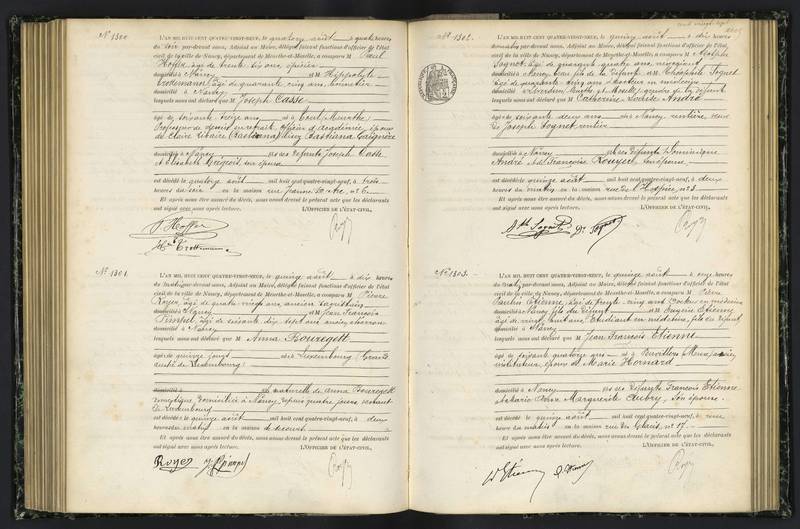 N° 1300
L'AN MIL HUIT CENT QUATRE-VINGT-NEUF, le quatorze août à quatre heures
du soir par-devant nous, Adjoint au Maire, délégué faisant fonctions d'officier de l'état
civil de la ville de Nancy, département de Meurthe-et-Moselle, a comparu M Paul
Hoffer, âgé de trente six ans, épicier
domicilié à Nancy et M Hippolyte
âgé de quarante cinq ans,
domicilié à Nancy
lesquels nous ont déclaré que M Joseph Casse
âgé de soixante treize ans né à Toul (Meurthe)
Professeur de dessin en retraite, officier d'académie, époux
de Claire
domicilié à Nancy fils des défunts Joseph Casse
et Elisabeth son épouse
est décédé le quatorze août mil huit cent quatre-vingt-neuf, à trois
heures du soir en la maison rue Jeanne d'Arc n° 6
Et après nous être assuré du décès, nous avons dressé le présent acte que les déclarants
ont signé avec nous après lecture. L'OFFICIER DE L'ÉTAT-CIVIL,
P. Hoffer
N° 1301.
L'AN MIL HUIT CENT QUATRE-VINGT-NEUF, le quinze août à dix heures
du matin par-devant nous, Adjoint au Maire, délégué faisant fonctions d'officier de l'état
civil de la ville de Nancy, département de Meurthe-et-Moselle, a comparu M Pierre
Royer, âgé de quatre vingts ans, ancien
domicilié à Nancy et M Jean François
âgé de soixante dix sept ans, ancien
domicilié à Nancy
lesquels nous ont déclaré que M Anna Bouregett
âgée de quinze jours née à Luxembourg (Grand
duché de Luxembourg)
domicilié à fille naturelle de Anna Bouregett
domestique domiciliée à Nancy, depuis quatre jours, venant
de Luxembourg
est décédée le quinze août mil huit cent quatre-vingt-neuf, à deux
heures du matin en la maison de secours
Et après nous être assuré du décès, nous avons dressé le présent acte que les déclarants
ont signé avec nous après lecture. L'OFFICIER DE L'ÉTAT-CIVIL,
Royer
N° 1302.
L'AN MIL HUIT CENT QUATRE-VINGT-NEUF, le quinze août à dix heures
du matin par-devant nous, Adjoint au Maire, délégué faisant fonctions d'officier de l'état
civil de la ville de Nancy, département de Meurthe-et-Moselle, a comparu M Adolphe
Sognet, âgé de quarante quatre ans, négociant
domicilié à Nancy, fils de la défunte et M Théophile Sognet
âgé de ans, docteur en médecine
domicilié à Liverdun (Meurthe et Moselle) gendre de la défunte
lesquels nous ont déclaré que M Catherine André
âgée de soixante deux ans née à Nancy, rentière, veuve
de Joseph Sognet, rentier
domicilié à Nancy fille des défunts Dominique
André et Françoise Rouyer, son épouse
est décédée le quinze août mil huit cent quatre-vingt-neuf, à deux
heures du matin en la maison rue de l'Hospice n° 3
Et après nous être assuré du décès, nous avons dressé le présent acte que les déclarants
ont signé avec nous après lecture. L'OFFICIER DE L'ÉTAT-CIVIL,
N° 1303.
L'AN MIL HUIT CENT QUATRE-VINGT-NEUF, le quinze août à onze heures
du matin par-devant nous, Adjoint au Maire, délégué faisant fonctions d'officier de l'état
civil de la ville de Nancy, département de Meurthe-et-Moselle, a comparu M Pierre
Paulin Etienne, âgé de trente cinq ans, Docteur en médecine
domicilié à Nancy, fils du défunt et M Eugène Etienne
âgé de vingt huit ans, Etudiant en médecine, fils du défunt
domicilié à Nancy
lesquels nous ont déclaré que M Jean François Etienne
âgé de soixante quatorze ans né à (Meuse) ancien
instituteur, époux de Marie Honnard
domicilié à Nancy fils des défunts François Etienne
et Marie Anne Marguerite Aubry, son épouse
est décédé le quinze août mil huit cent quatre-vingt-neuf, à une
heure du matin en la maison rue n° 17
Et après nous être assuré du décès, nous avons dressé le présent acte que les déclarants
ont signé avec nous après lecture. L'OFFICIER DE L'ÉTAT-CIVIL,